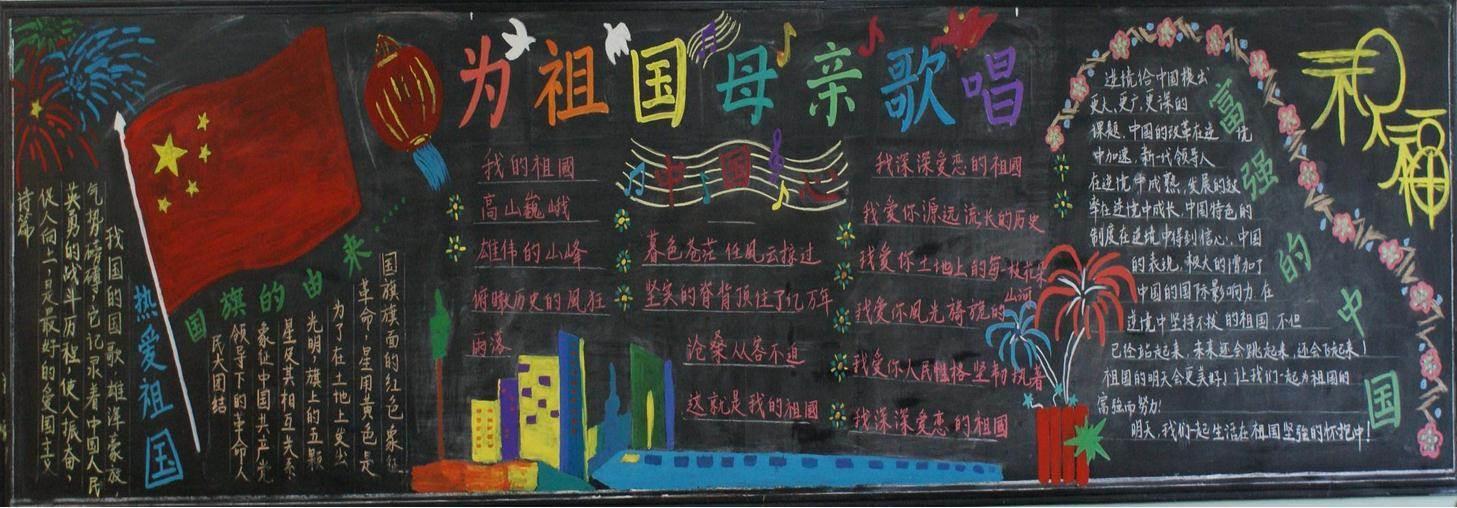 为祖国母亲歌唱
热爱祖国
我国的国歌雄洋豪放,
气势磅礴,它记录着中国人民
英勇的战斗历程,使人振奋,
促人向上,是最好的爱国主义
诗篇
国旗的由来……
国旗旗面的红色象征
革命,星用黄色是
为了在土地上突出
光明,旗上的五颗
星及其相互关系
象征中国共产党
领导下的革命人
民大团结
我的祖國
高山巍峨
雄伟的山峰
俯瞰历史的风狂
雨落
中国心
暮色苍茫任风云掠过
坚实的脊背顶住了亿万年
沧桑从容不迫
这就是我的祖國
我深深爱恋的祖國
我爱你源远流长的历史
我爱你土地上的每一枝花朵
我爱你风光旖旎的山河
我爱你人民性格坚韧执着
我深深爱恋的祖國
富强的中国
逆境给中国提出
更大,更广,更深的
课题,中国的改革在逆境
中加速,新一代领导人
在逆境中成熟,发展的效
率在逆境中成长,中国特色的
制度在逆境中得到信心,中国
的表现,极大的增加了
中国的国际影响力.在
逆境中坚持不拔的祖国,不但
已经站起来,未来还会跳起来,还会飞起来!
祖国的明天会更美好!让我们一起为祖国的
富强而努力!
明天,我们一起生活在祖国坚强的怀抱中!
祝福